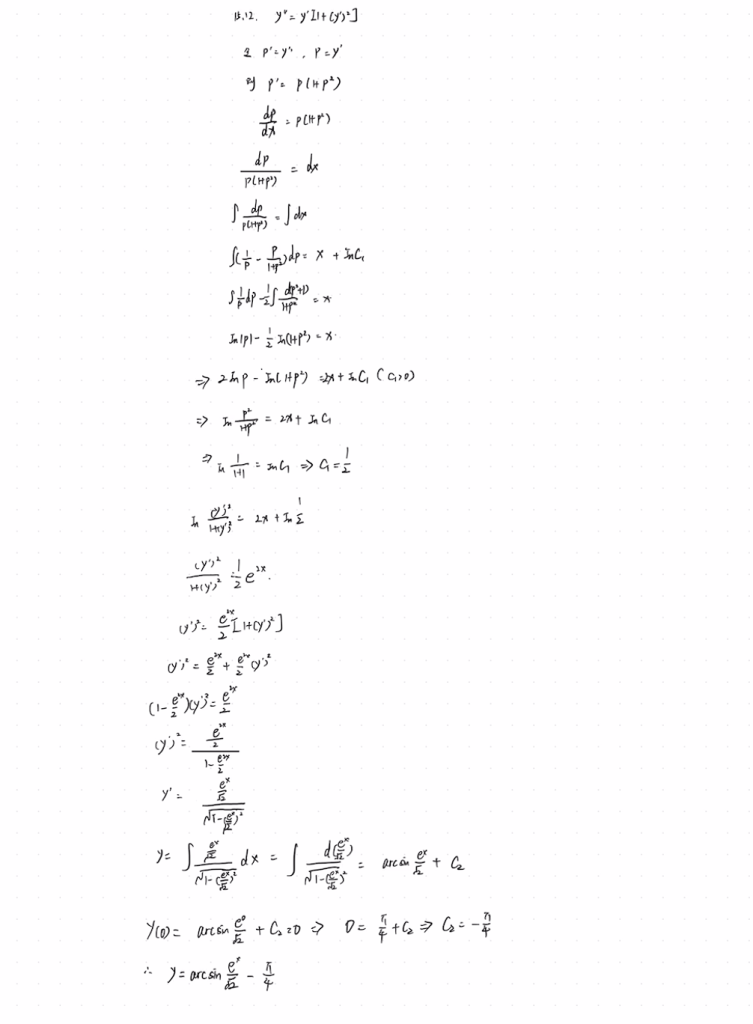 13.12. y''=y'[1+(y')²]
令 p'=y'', p=y'
则 p'=p(1+p²)
dp/dx = p(1+p²)
dp/(p(1+p²)) = dx
∫ dp/(p(1+p²)) = ∫dx
∫(1/p - p/(1+p²))dp = x + lnC₁
∫1/p dp - 1/2∫ d(p²+1)/(1+p²) = x
ln|p| - 1/2 ln(1+p²) = x.
⇒ 2lnp - ln(1+p²) = 2x + lnC₁ (C₁>0)
⇒ ln p²/(1+p²) = 2x + lnC₁
⇒ ln 1/(1+1) = lnC₁ ⇒ C₁ = 1/2
ln (y')²/(1+(y')²) = 2x + ln 1/2
(y')²/(1+(y')²) = 1/2 e^(2x).
(y')² = e^(2x)/2 [1+(y')²]
(y')² = e^(2x)/2 + e^(2x)/2 (y')²
(1 - e^(2x)/2)(y')² = e^(2x)/2
(y')² = (e^(2x)/2)/(1 - e^(2x)/2)
y' = (e^x/√2)/√(1-(e^x/√2)²)
y = ∫ (e^x/√2)/√(1-(e^x/√2)²) dx = ∫ d(e^x/√2)/√(1-(e^x/√2)²) = arcsin e^x/√2 + C₂
y(0) = arcsin e⁰/√2 + C₂ = 0 ⇒ 0 = π/4 + C₂ ⇒ C₂ = -π/4
∴ y = arcsin e^x/√2 - π/4